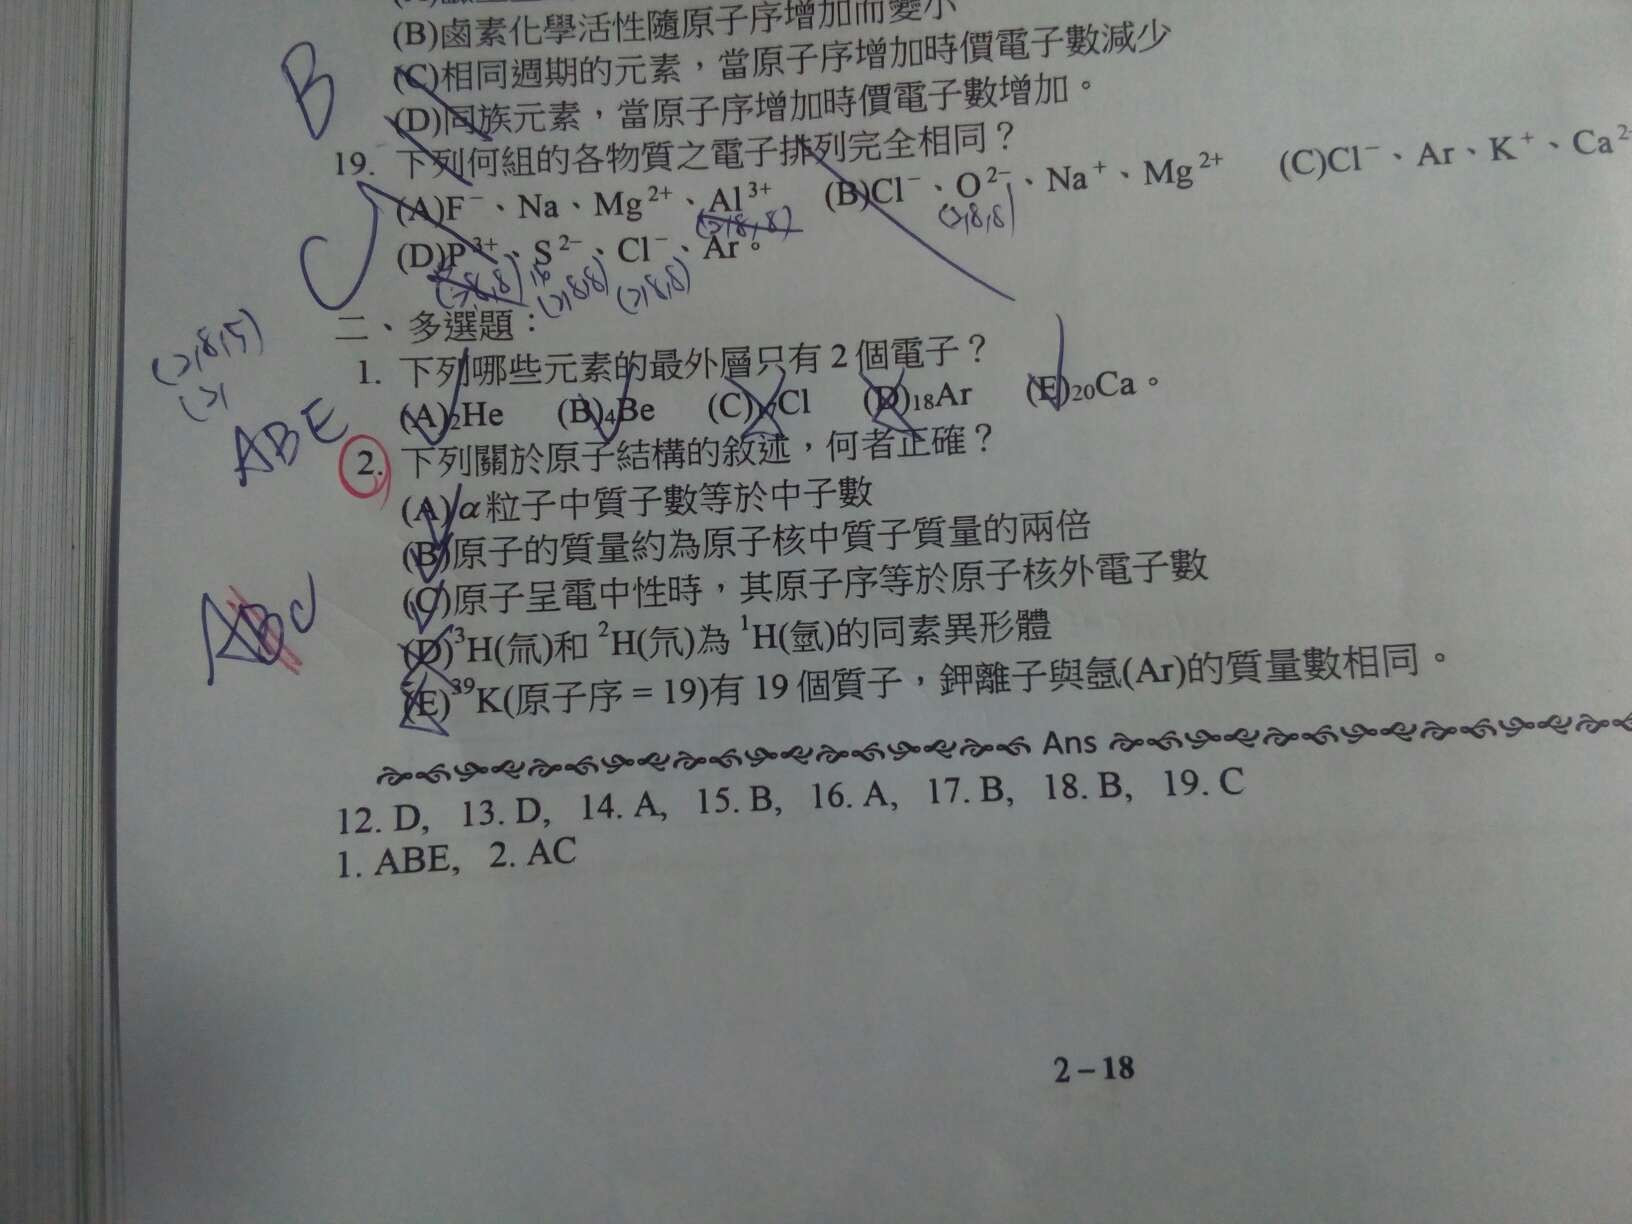 (B)鹵素化學活性隨原子序增加而變小
(C)相同週期的元素，當原子序增加時價電子數減少
(D)同族元素，當原子序增加時價電子數增加。
B
19. 下列何組的各物質之電子排列完全相同？
(A)F⁻、Na、Mg²⁺、Al³⁺ (B)Cl⁻、O²⁻、Na⁺、Mg²⁺ (C)Cl⁻、Ar、K⁺、Ca²
(2,8,8) (2,8,8)
(D)P³⁺、S²⁻、Cl⁻、Ar。
C
(2,8,8) (2,8,8) (2,8,8)
二、多選題：
(2,8,5)
1. 下列哪些元素的最外層只有 2 個電子？
(A)₂He (B)₄Be (C)₁₇Cl (D)₁₈Ar (E)₂₀Ca。
ABE
2. 下列關於原子結構的敘述，何者正確？
(A)α粒子中質子數等於中子數
(B)原子的質量約為原子核中質子質量的兩倍
(C)原子呈電中性時，其原子序等於原子核外電子數
ABC
(D)³H(氚)和 ²H(氘)為 ¹H(氫)的同素異形體
(E)³⁹K(原子序 = 19)有 19 個質子，鉀離子與氬(Ar)的質量數相同。
Ans
12. D, 13. D, 14. A, 15. B, 16. A, 17. B, 18. B, 19. C
1. ABE, 2. AC
2－18